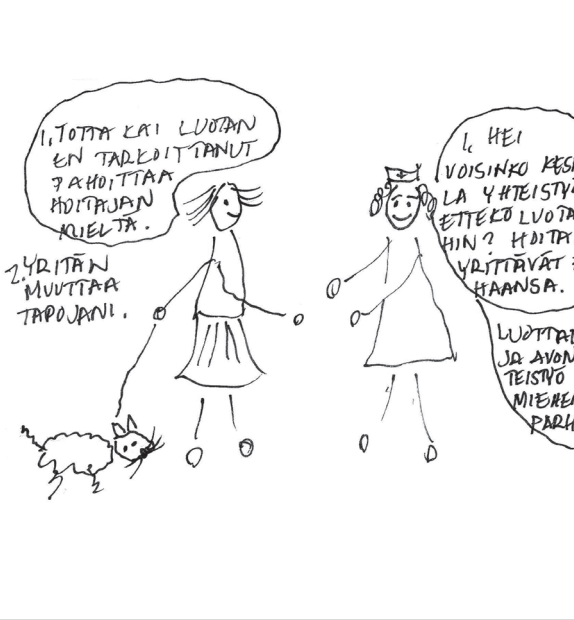 1. TOTTA KAI LUOTAN
EN TARKOITTANUT
PAHOITTAA
HOITAJAN
MIELTÄ.
2. YRITÄN
MUUTTAA
TAPOJANI.
1. HEI
VOISINKO KES
LA YHTEISTY
ETTEKÖ LUOTA
HIN? HOITA
YRITTÄVÄT
HAANSA.
LUOTTA
JA AVON
TEISTYÖ
MIEHE
PARH